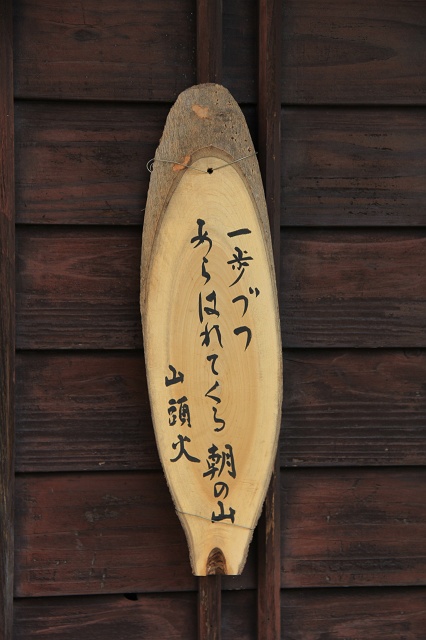 一歩づつ
あらはれてくる朝の山
山頭火